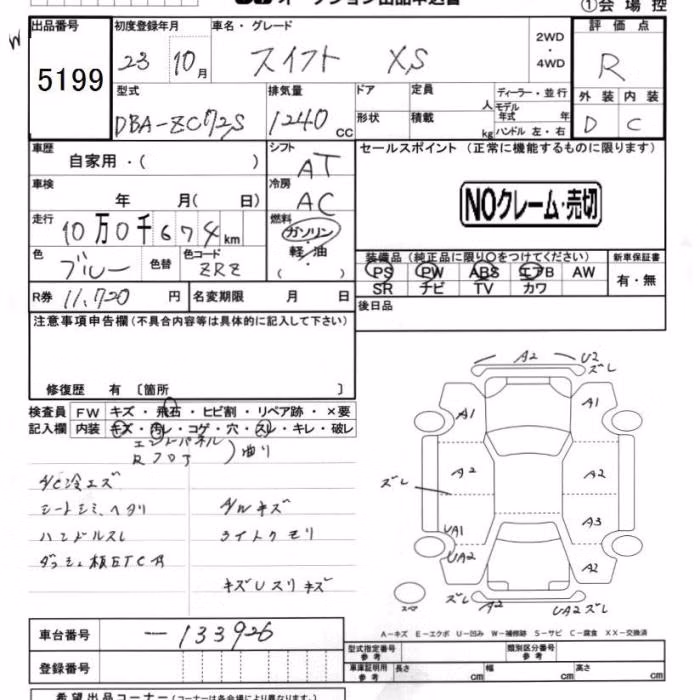 ①会場控
出品番号 初度登録年月 車名・グレード 2WD ・ 4WD 評価点
5199 23 10月 スイフト XS R
型式 排気量 ドア 定員 人 ディーラー・並行
外装 内装
DBA-ZC72S 1240 CC 形状 積載 kg モデル年式 年 ハンドル 左・右 D C
車歴 自家用・( ) シフト AT セールスポイント (正常に機能するものに限ります)
車検 年 月( 日) 冷房 AC
NOクレーム・売切
走行 10万0千674km 燃料 ガソリン 軽・油 ( )
色 ブルー 色替 色コード ZRZ
装備品(純正品に限り○をつけてください) 新車保証書
PS PW ABS エアB AW 有・無
SR ナビ TV カワ
R券 11,720円 名変期限 月 日 後日品
注意事項申告欄(不具合内容等は具体的に記入して下さい)
修復歴 有 〔箇所 〕
検査員 FW キズ・飛石・ヒビ割・リペア跡・×要
記入欄 内装 キズ・汚レ・コゲ・穴・スレ・キレ・破レ
A/C冷エズ
シートシミ、ヘタリ A/Wキズ
ハンドルスレ ライトクモリ
ダッシュ板ETC有
A2 U2 ズレ
A1 A1
ズレ A2 A2
A3
UA1
UA2 A2
スペア ズレ A2 UA2 ズレ
A-キズ E-エクボ U-凹み W-補修跡 S-サビ C-腐食 XX-交換済
車台番号 -133926
型式指定番号 参考 類別区分番号 参考
登録番号 車庫証明用 参考 長さ cm 幅 cm 高さ cm
希望出品コーナー(コーナーは各会場により異なります。)